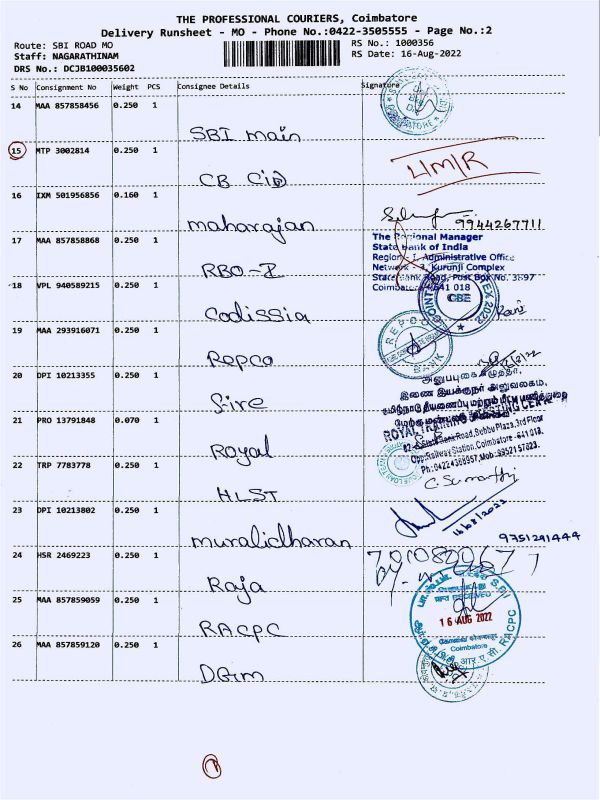 THE PROFESSIONAL COURIERS, Coimbatore
Delivery Runsheet - MO - Phone No.:0422-3505555 - Page No.:2
Route: SBI ROAD MO
RS No.: 1000356
Staff: NAGARATHINAM
RS Date: 16-Aug-2022
DRS No.: DCJB100035602
S No Consignment No Weight PCS Consignee Details Signature
14 MAA 857858456 0.250 1
SBI main
15 MTP 3002814 0.250 1
CB
16 IXM 501956856 0.160 1
maharajan
9944267711
17 MAA 857858868 0.250 1
RBO-I
The Regional Manager
State Bank of India
Region - I, Administrative Office
Network - 3, Kurunji Complex
State Bank Road, Post Box No. 3897
Coimbatore 641 018
18 VPL 940589215 0.250 1
Codissia
CBE
19 MAA 293916071 0.250 1
Repco
REPCO
BANK
20 DPI 10213355 0.250 1
fire
இணை இயக்குநர் அலுவலகம்,
21 PRO 13791848 0.070 1
Royal
Road, Subbu Plaza, 3rd Floor
Opp:Railway Station, Coimbatore - 641 018.
22 TRP 7783778 0.250 1
HLST
23 DPI 10213802 0.250 1
muralidharan
16/08/2022
9751291444
24 HSR 2469223 0.250 1
Raja
25 MAA 857859059 0.250 1
RACPC
16 AUG 2022
Coimbatore
RACPC
26 MAA 857859120 0.250 1
DGM